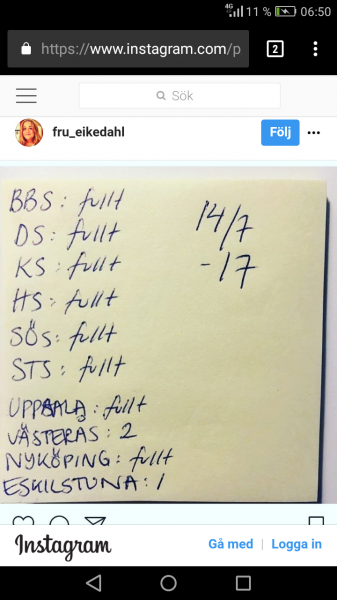 4G 11 % 06:50
https://www.instagram.com/p
2
Sök
fru_eikedahl
Följ
BBS: fullt
DS: fullt
KS: fullt
HS: fullt
SÖS: fullt
STS: fullt
UPPSALA: fullt
VÄSTERÅS: 2
NYKÖPING: fullt
ESKILSTUNA: 1
14/7
-17
Instagram
Gå med
Logga in